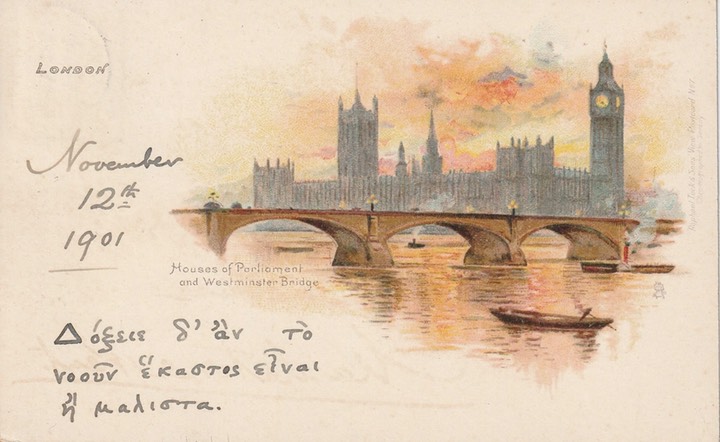 LONDON
November
12th
1901
Houses of Parliament
and Westminster Bridge
Δόξειε δ' ἂν τὸ
νοοῦν ἕκαστος εἶναι
ἢ μαλιστα.
Raphael Tuck & Sons